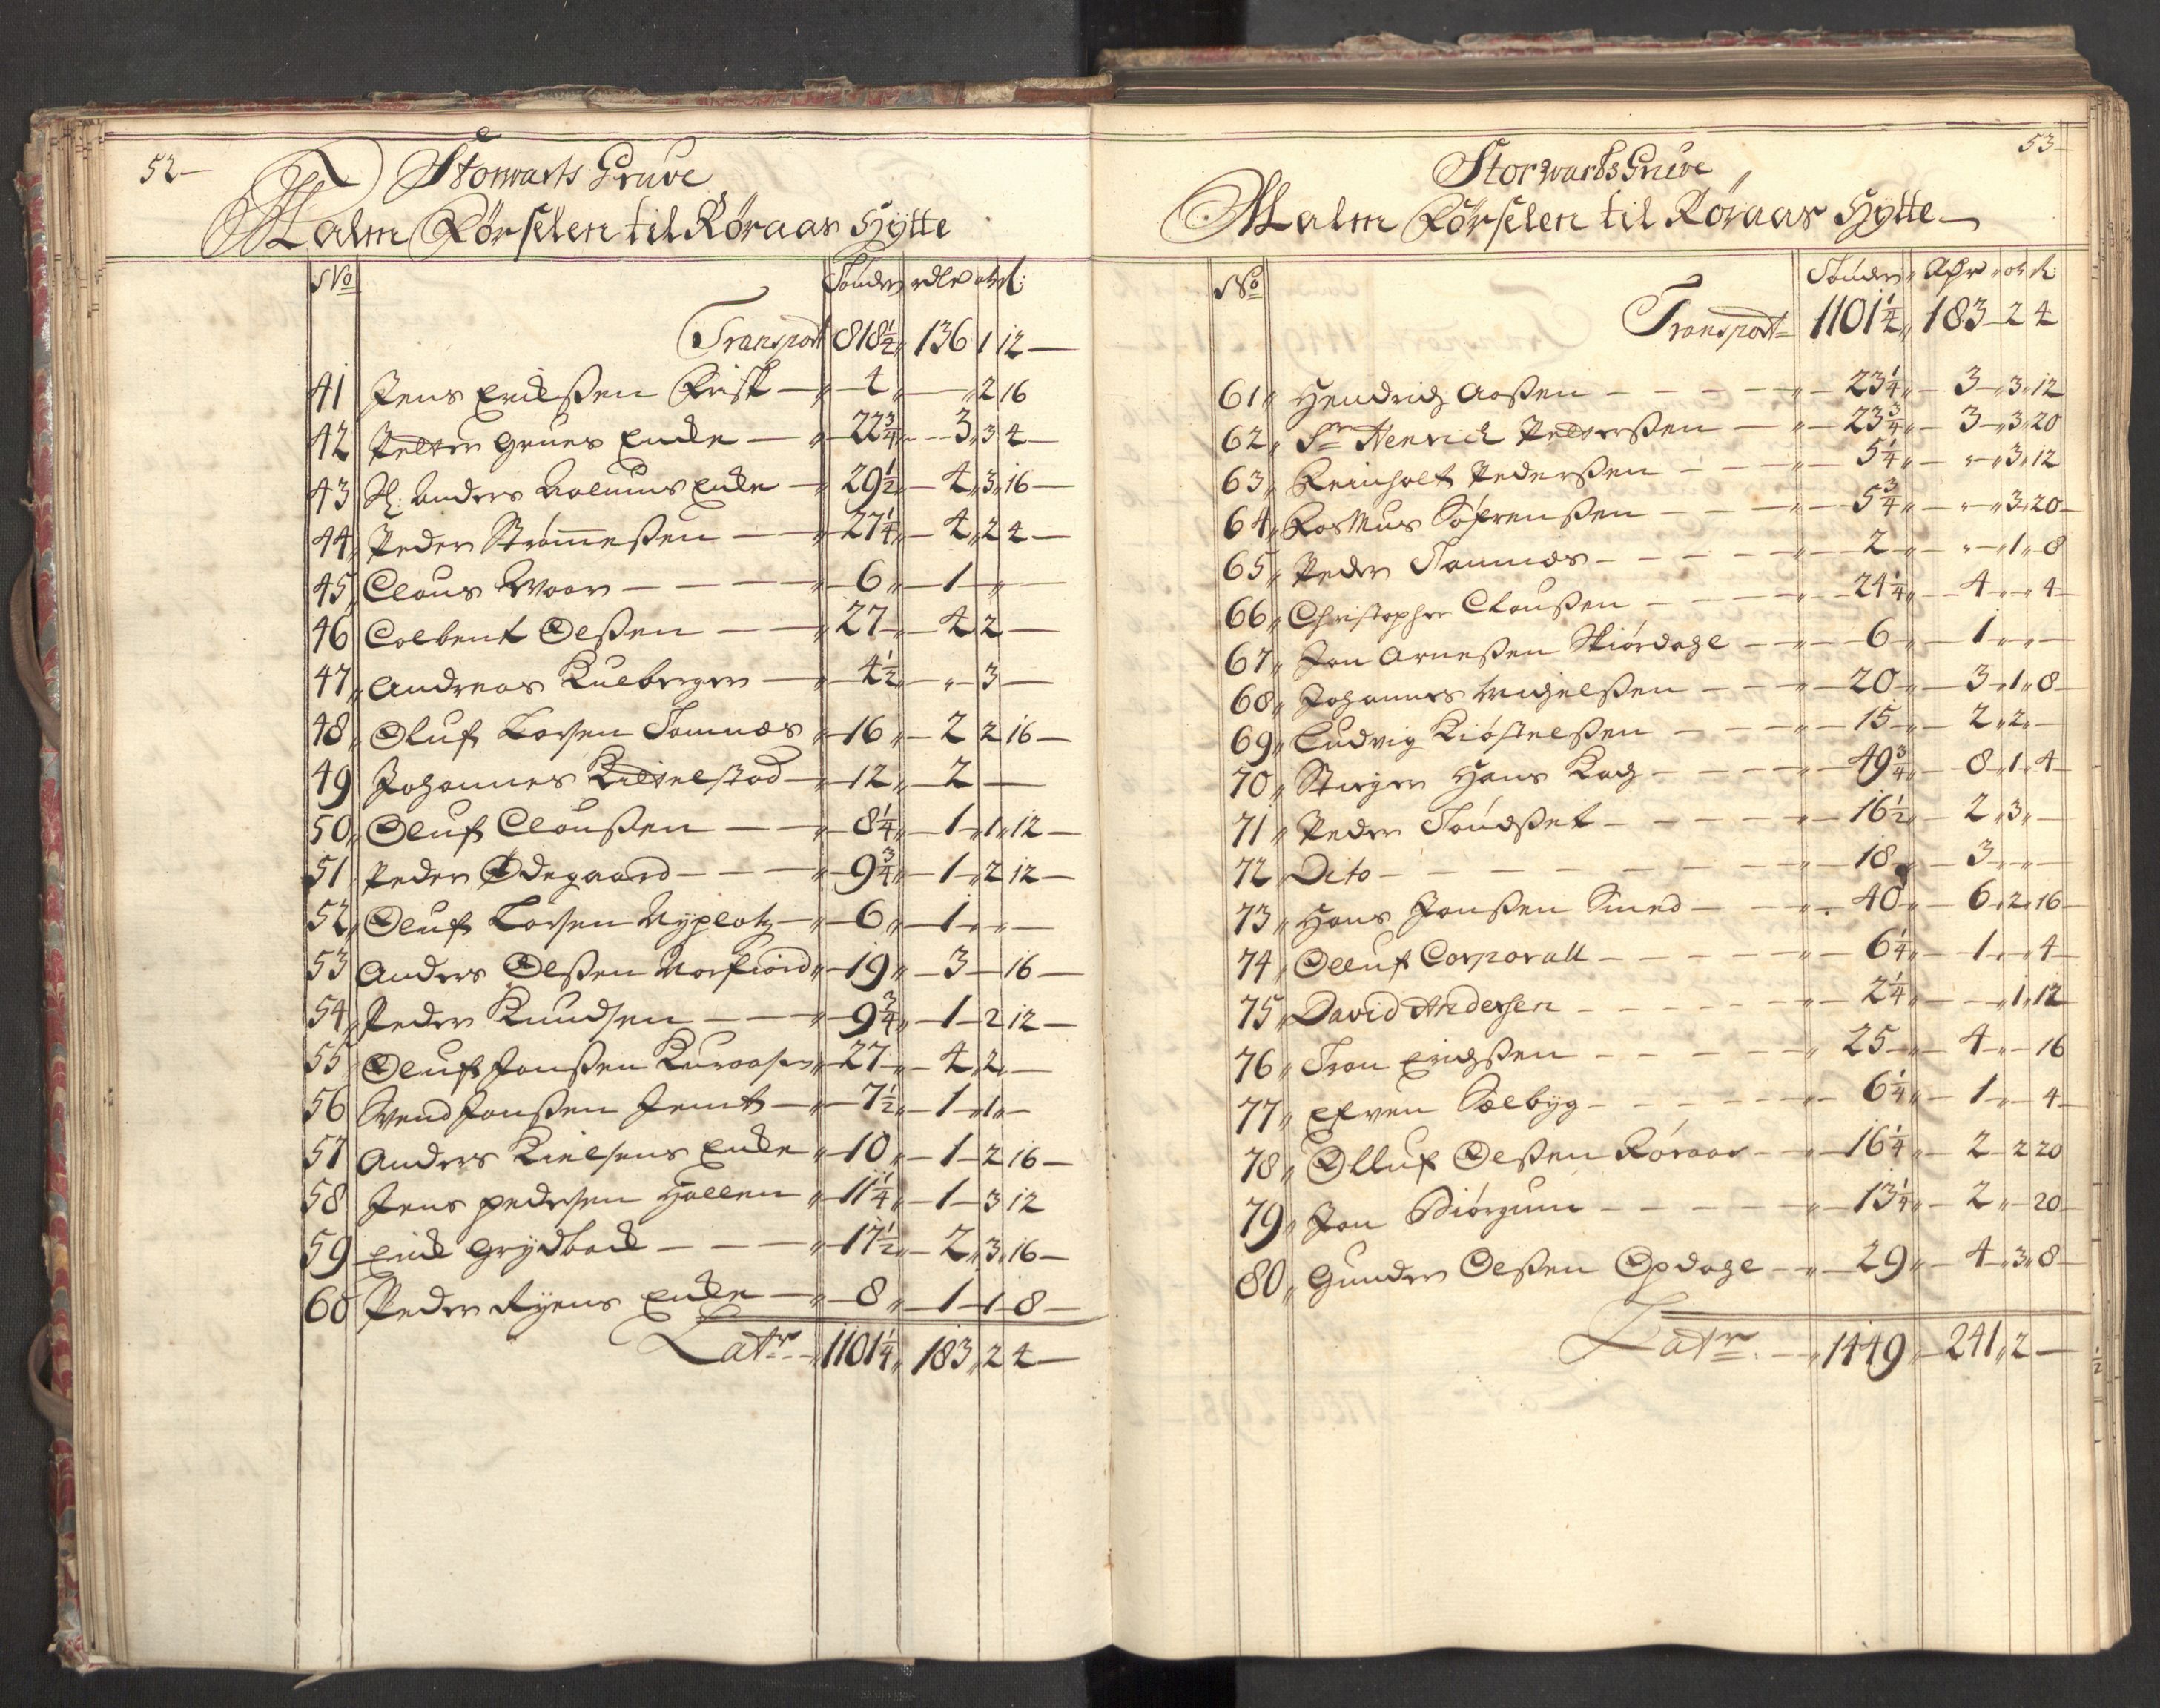 52
Storwarts Gruve
Malm Körselen til Röraas Hytte
No Tönder rdlr ort s:
Transport 818½ 136 1 12
41 Jens Erichsen Frisk 4 2 16
42 Petter Grues Encke 22¾ 3 3 4
43 Sl: Anders Aalmus Encke 29½ 4 3 16
44 Peder Strömmeßen 27¼ 4 2 4
45 Claus Moor 6 1
46 Colbent Olßen 27 4 2
47 Andreas Kulberger 4½ 3
48 Oluf Larsen Tamnæs 16 2 2 16
49 Johannes Kittelstad 12 2
50 Oluf Claußen 8¼ 1 1 12
51 Peder Ødegaard 9¾ 1 2 12
52 Oluf Larsen Nyplatz 6 1
53 Anders Olßen Morfiord 19 3 16
54 Peder Knudsen 9¾ 1 2 12
55 Oluf Jonßen Kuraasen 27 4 2
56 Svend Jonßen Jemt 7½ 1 1
57 Anders Kielsens Encke 10 1 2 16
58 Jens pedersen Hallen 11¼ 1 3 12
59 Erick Grydback 17½ 2 3 16
60 Peder Ryens Encke 8 1 1 8
Latr 1101¼ 183 2 4
53
Storwarts Gruve
Malm Körselen til Röraas Hytte
No Tönder Rdr ort s
Transport 1101¼ 183 2 4
61 Hendrich Aaßen 23¼ 3 3 12
62 Sr Henrich Petterßen 23¾ 3 3 20
63 Reinholt Pederßen 5¼ 3 12
64 Rasmus Söfrenßen 5¾ 3 20
65 Peder Tamnæs 2 1 8
66 Christopher Claußen 24¼ 4 4
67 Jon Arneßen Stiørdahl 6 1
68 Johannes Michelßen 20 3 1 8
69 Ludvig Kiøstelßen 15 2 2
70 Stiger Hans Kog 49¾ 8 1 4
71 Peder Töndset 16½ 2 3
72 Dito 18 3
73 Hans Jonßen Smed 40 6 2 16
74 Olluf Corporall 6¼ 1 4
75 David Andersen 2¼ 1 12
76 Tron Erichßen 25 4 16
77 Efven Sælbyg 6¼ 1 4
78 Olluf Olßen Röraas 16¼ 2 2 20
79 Jon Biörgum 13¼ 2 20
80 Gunder Olßen Opdahl 29 4 3 8
Latr 1449 241 2